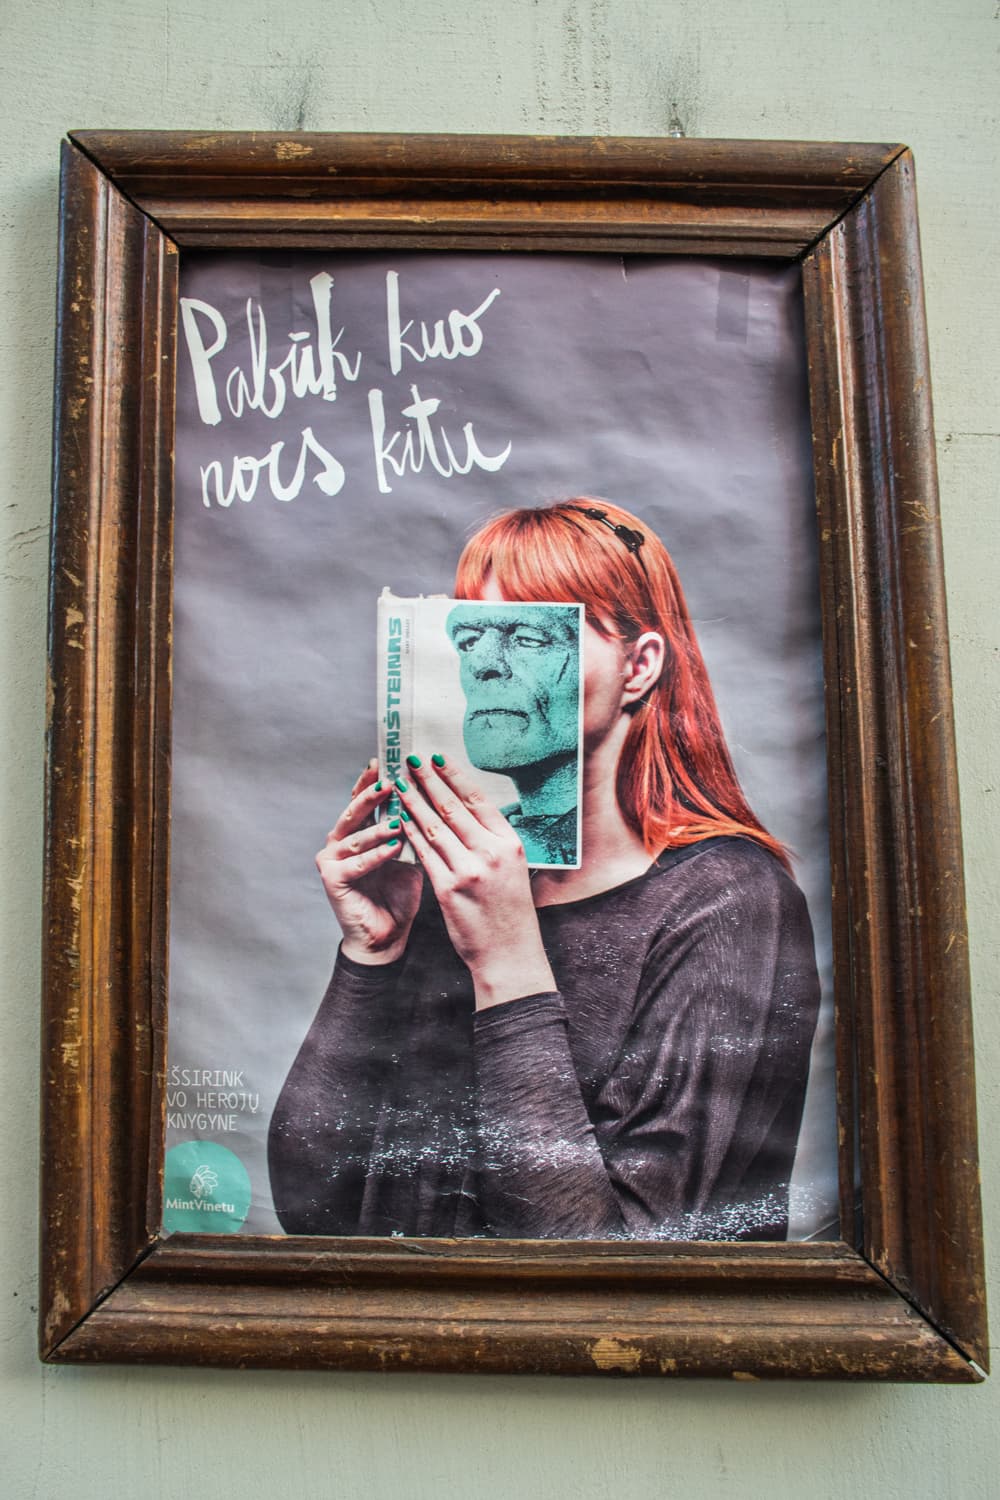 Pabūk kuo
nors kitu
KENŠTEINAS
IŠSIRINK
VO HEROJŲ
KNYGYNE
MintVinetu